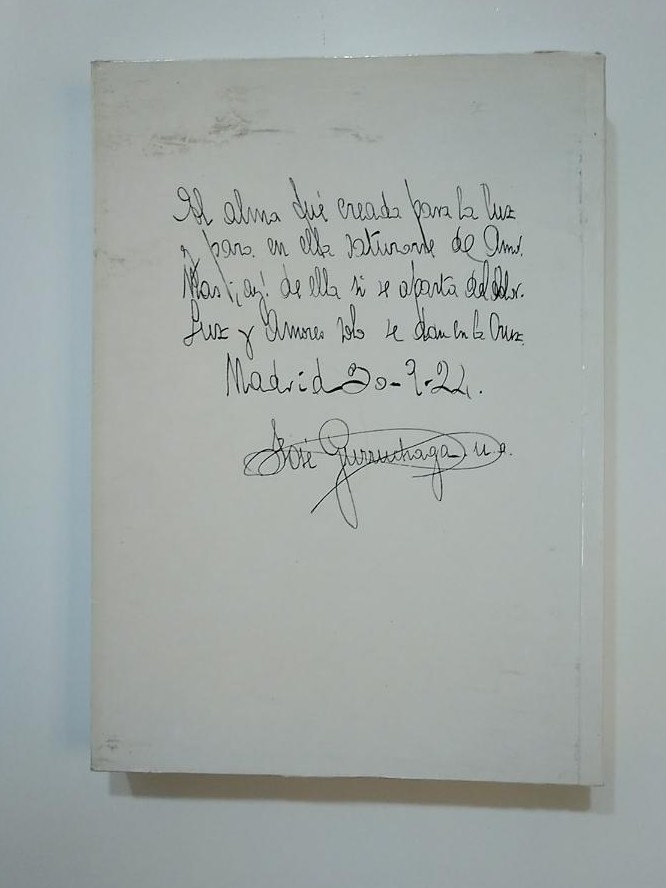 El alma fué creada para la Luz
y para en ella saturarse de Amor.
Mas ¡ay! de ella si se aparta del dolor.
Luz y Amores solo se dan en la Cruz.
Madrid 20-9-24.
José Gurruchaga